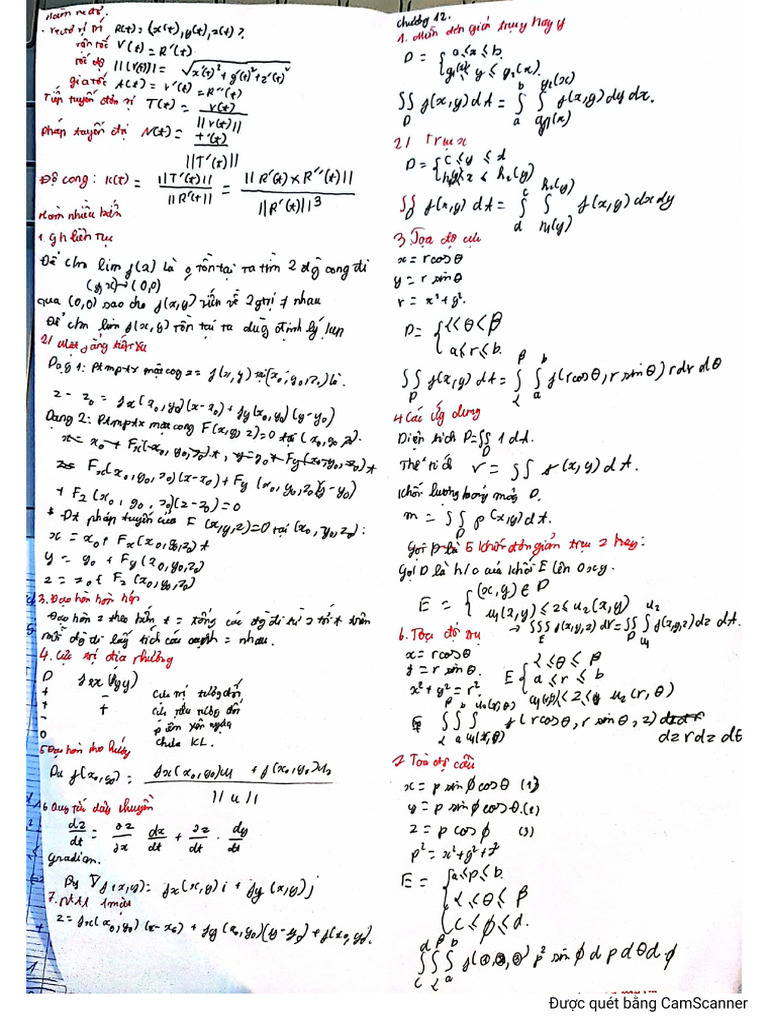 Hàm vectơ.
- vectơ vị trí R(t) = (x(t), y(t), z(t)).
vận tốc V(t) = R'(t)
tốc độ ||V(t)|| = √(x'(t)² + y'(t)² + z'(t)²)
gia tốc A(t) = V'(t) = R''(t)
Tiếp tuyến đơn vị T(t) = V(t) / ||V(t)||
pháp tuyến đvị N(t) = T'(t) / ||T'(t)||
Độ cong: K(t) = ||T'(t)|| / ||R'(t)|| = ||R'(t) x R''(t)|| / ||R'(t)||³
Hàm nhiều biến
1. gh liên tục
Để chm lim f(x) là o tồn tại ta tìm 2 đg cong đi
(x,y)→(0,0)
qua (0,0) sao cho f(x,y) tiến về 2 gtrị ≠ nhau
Để chm lim f(x,y) tồn tại ta dùng định lý kẹp
2/ Mặt phẳng tiếp xúc
Dạng 1: Ptmptx mặt cong z = f(x,y) tại (x₀, y₀, z₀) là.
z - z₀ = fx(x₀, y₀)(x-x₀) + fy(x₀, y₀)(y-y₀)
Dạng 2: Ptmptx mặt cong F(x,y,z)=0 tại (x₀, y₀, z₀).
Fx(x₀, y₀, z₀)(x-x₀) + Fy(x₀, y₀, z₀)(y-y₀)
+ Fz(x₀, y₀, z₀)(z-z₀) = 0
* Pt pháp tuyến của F(x,y,z)=0 tại (x₀, y₀, z₀):
x = x₀ + Fx(x₀, y₀, z₀) t
y = y₀ + Fy(x₀, y₀, z₀)
z = z₀ + Fz(x₀, y₀, z₀)
3. Đạo hàm hàm hợp
Đạo hàm z theo biến t = tổng các đg đi từ z tới t trên
mỗi đg đi lấy tích các nhau.
4. Cực trị địa phương
D fxx (fyy)
+ - Cực trị tương đối
+ + Cực tiểu tương đối
- điểm yên ngựa
0 chưa KL.
5 Đạo hàm theo hướng
Du f(x₀, y₀) = fx(x₀, y₀)u₁ + f(x₀, y₀)u₂ / ||u||
6 Quy tắc dây chuyền
dz/dt = ∂z/∂x dx/dt + ∂z/∂t · dy/dt
gradian.
∇f(x,y) = fx(x,y) i + fy(x,y) j
z = fx(x₀, y₀)(x-x₀) + fy(x₀, y₀)(y-y₀) + f(x₀, y₀).
Chương 12.
1. Miền đơn giản trục hay y
D = { a≤x≤b.
g₁(x) ≤ y ≤ g₂(x).
∬_D f(x,y)dA = ∫_a^b ∫_{g₁(x)}^{g₂(x)} f(x,y) dy dx.
2/ Trục x
D = { c ≤ y ≤ d
h₁(y) ≤ x ≤ h₂(y)
∬_D f(x,y) dA = ∫_d^c ∫_{h₁(y)}^{h₂(y)} f(x,y) dx dy
3. Tọa độ cực
x = r cos θ
y = r sin θ
r = x² + y².
D = { α ≤ θ ≤ β
a ≤ r ≤ b.
∬_D f(x,y) dA = ∫_α^β ∫_a^b f(r cos θ, r sin θ) r dr dθ
4 Các ứg dụng
Diện tích D = ∬_D 1 dA.
Thể tích V = ∬ f(x,y) dA.
Khối lượng bảng mỏng D.
m = ∬_D ρ(x,y) dt.
Gọi E khối đơn giản trục z hay:
Gọi D là h/c của khối E lên Oxy.
E = { (x,y) ∈ D
u₁(x,y) ≤ z ≤ u₂(x,y)
→ ∭_E f(x,y,z) dV = ∬_D ∫_{u₁}^{u₂} f(x,y,z) dz dA.
6. Tọa độ trụ
x = r cos θ
y = r sin θ.
x² + y² = r².
E { α ≤ θ ≤ β
a ≤ r ≤ b
u₁(r,θ) ≤ z ≤ u₂(r,θ)
∫_α^β ∫_a^b ∫_{u₁(r,θ)}^{u₂(r,θ)} f(r cos θ, r sin θ, z)
dz r dz dθ
7 Toạ độ cầu
x = ρ sin ϕ cos θ (1)
y = ρ sin ϕ cos θ. (2)
z = ρ cos ϕ (3)
ρ² = x² + y² + z²
E = { a ≤ ρ ≤ b.
α ≤ θ ≤ β
c ≤ ϕ ≤ d.
∫_c^d ∫_α^β ∫_a^b f(①,②,③) ρ² sin ϕ dρ dθ dϕ
Được quét bằng CamScanner